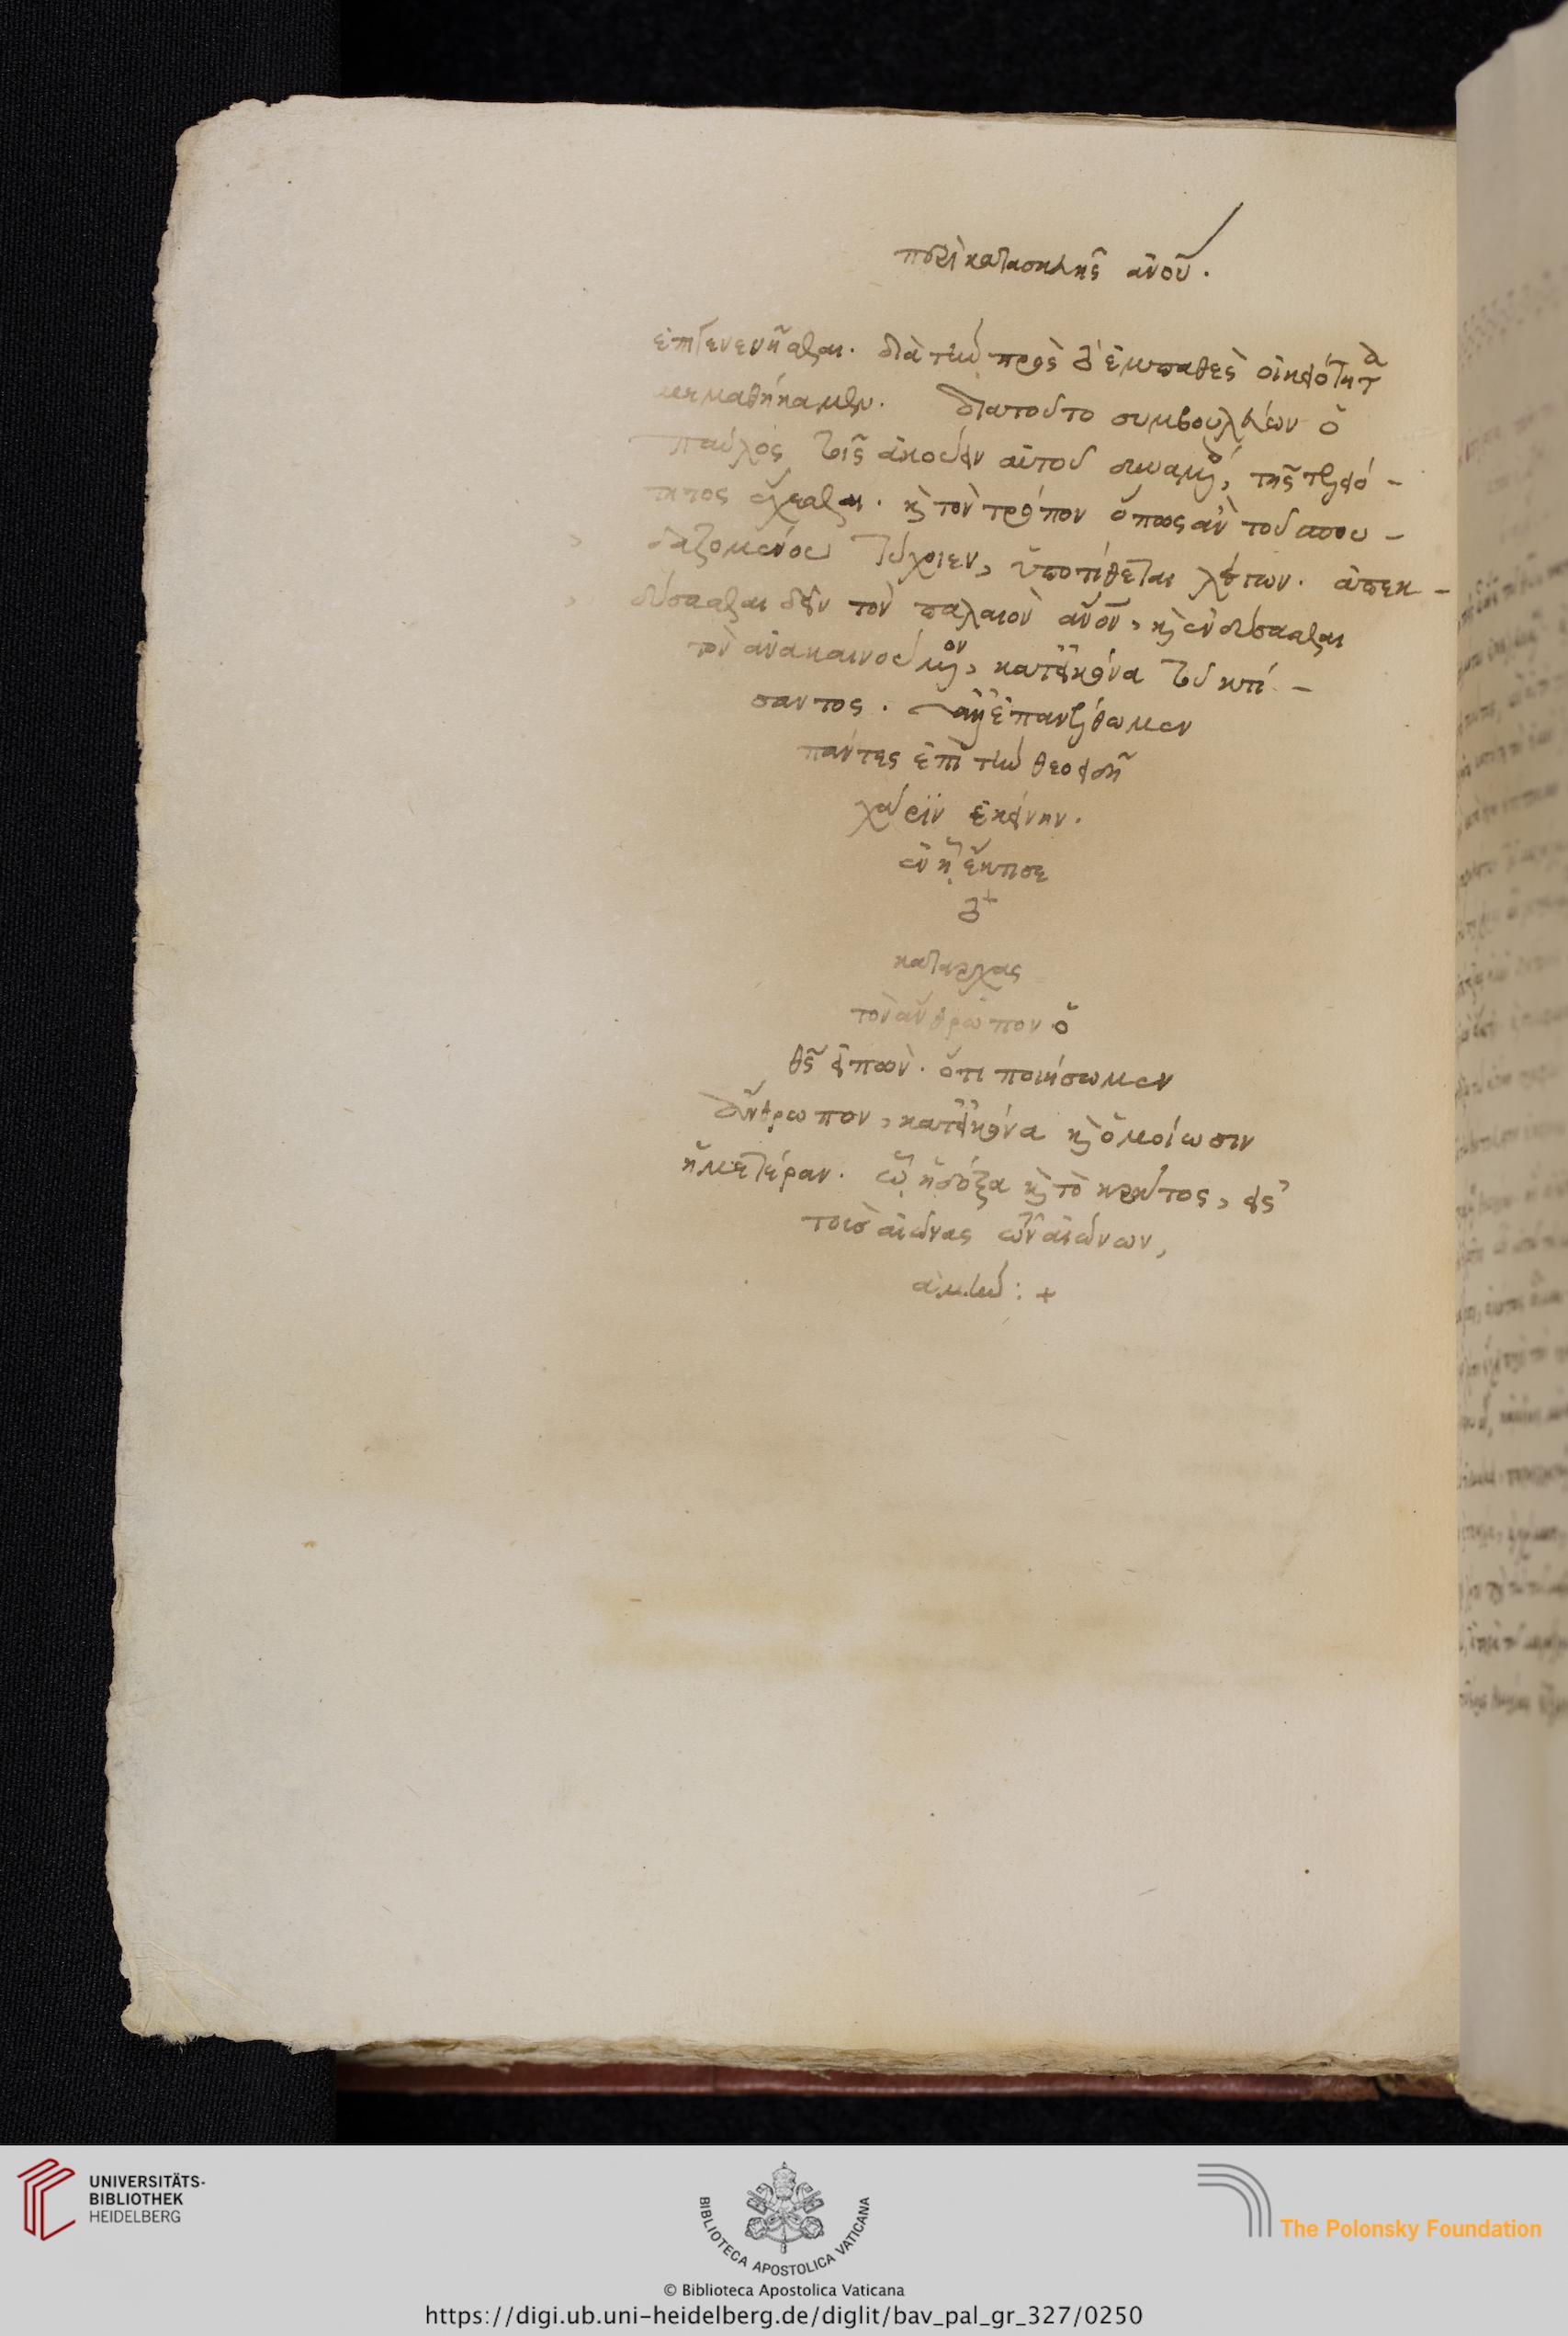 περὶ κατασκευῆς ἀνου.
ἐπιγενενῆσθαι. διὰ τὴν πρὸς τὸ ἐμπαθὲς οἰκειότητα
μεμαθήκαμεν. διατοῦτο συμβουλεύων ὁ
παῦλος τοῖς ἀκούειν αὐτοῦ δυναμένοις, τῆς τελειό-
τητος ἔχεσθαι. καὶ τὸν τρόπον ὅπως ἂν τοῦ σπου-
δαζομένου τύχοιεν, ὑποτίθεται λέγων. ἀπεκ-
δύσασθαι δεῖν τὸν παλαιὸν ἄνον, καὶ ἐνδύσασθαι
τὸν ἀνακαινούμενον, κατ' εἰκόνα τοῦ κτί-
σαντος. ἀλλ' ἐπανέλθωμεν
πάντες ἐπὶ τὴν θεοειδῆ
χάριν ἐκείνην.
ἐν ᾗ ἔκτισε
τὸ
καταρχας
τὸν ἄνθρωπον ὁ
θς εἰπὼν. ὅτι ποιήσωμεν
ἄνθρωπον, κατ' εἰκόνα καὶ ὁμοίωσιν
ἡμετέραν. ᾧ ἡ δόξα καὶ τὸ κράτος, εἰς
τοὺς αἰῶνας τῶν αἰώνων,
ἀμήν: +
UNIVERSITÄTS-
BIBLIOTHEK
HEIDELBERG
BIBLIOTECA APOSTOLICA VATICANA
The Polonsky Foundation
© Biblioteca Apostolica Vaticana
https://digi.ub.uni-heidelberg.de/diglit/bav_pal_gr_327/0250